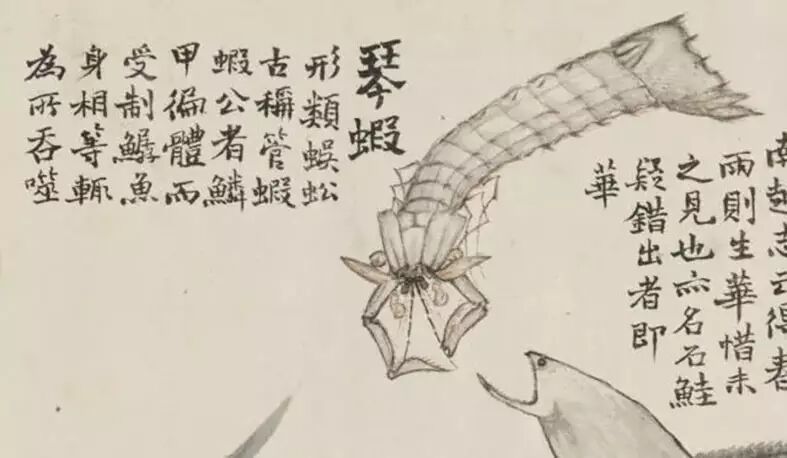 南越志云得春
雨則生華惜未
之見也亦名石鮭
疑錯出者即
華
琴蝦
形類蜈蚣
古稱管蝦
蝦公者鱗
甲徧體而
受制鱘魚
身相等輒
為所吞噬